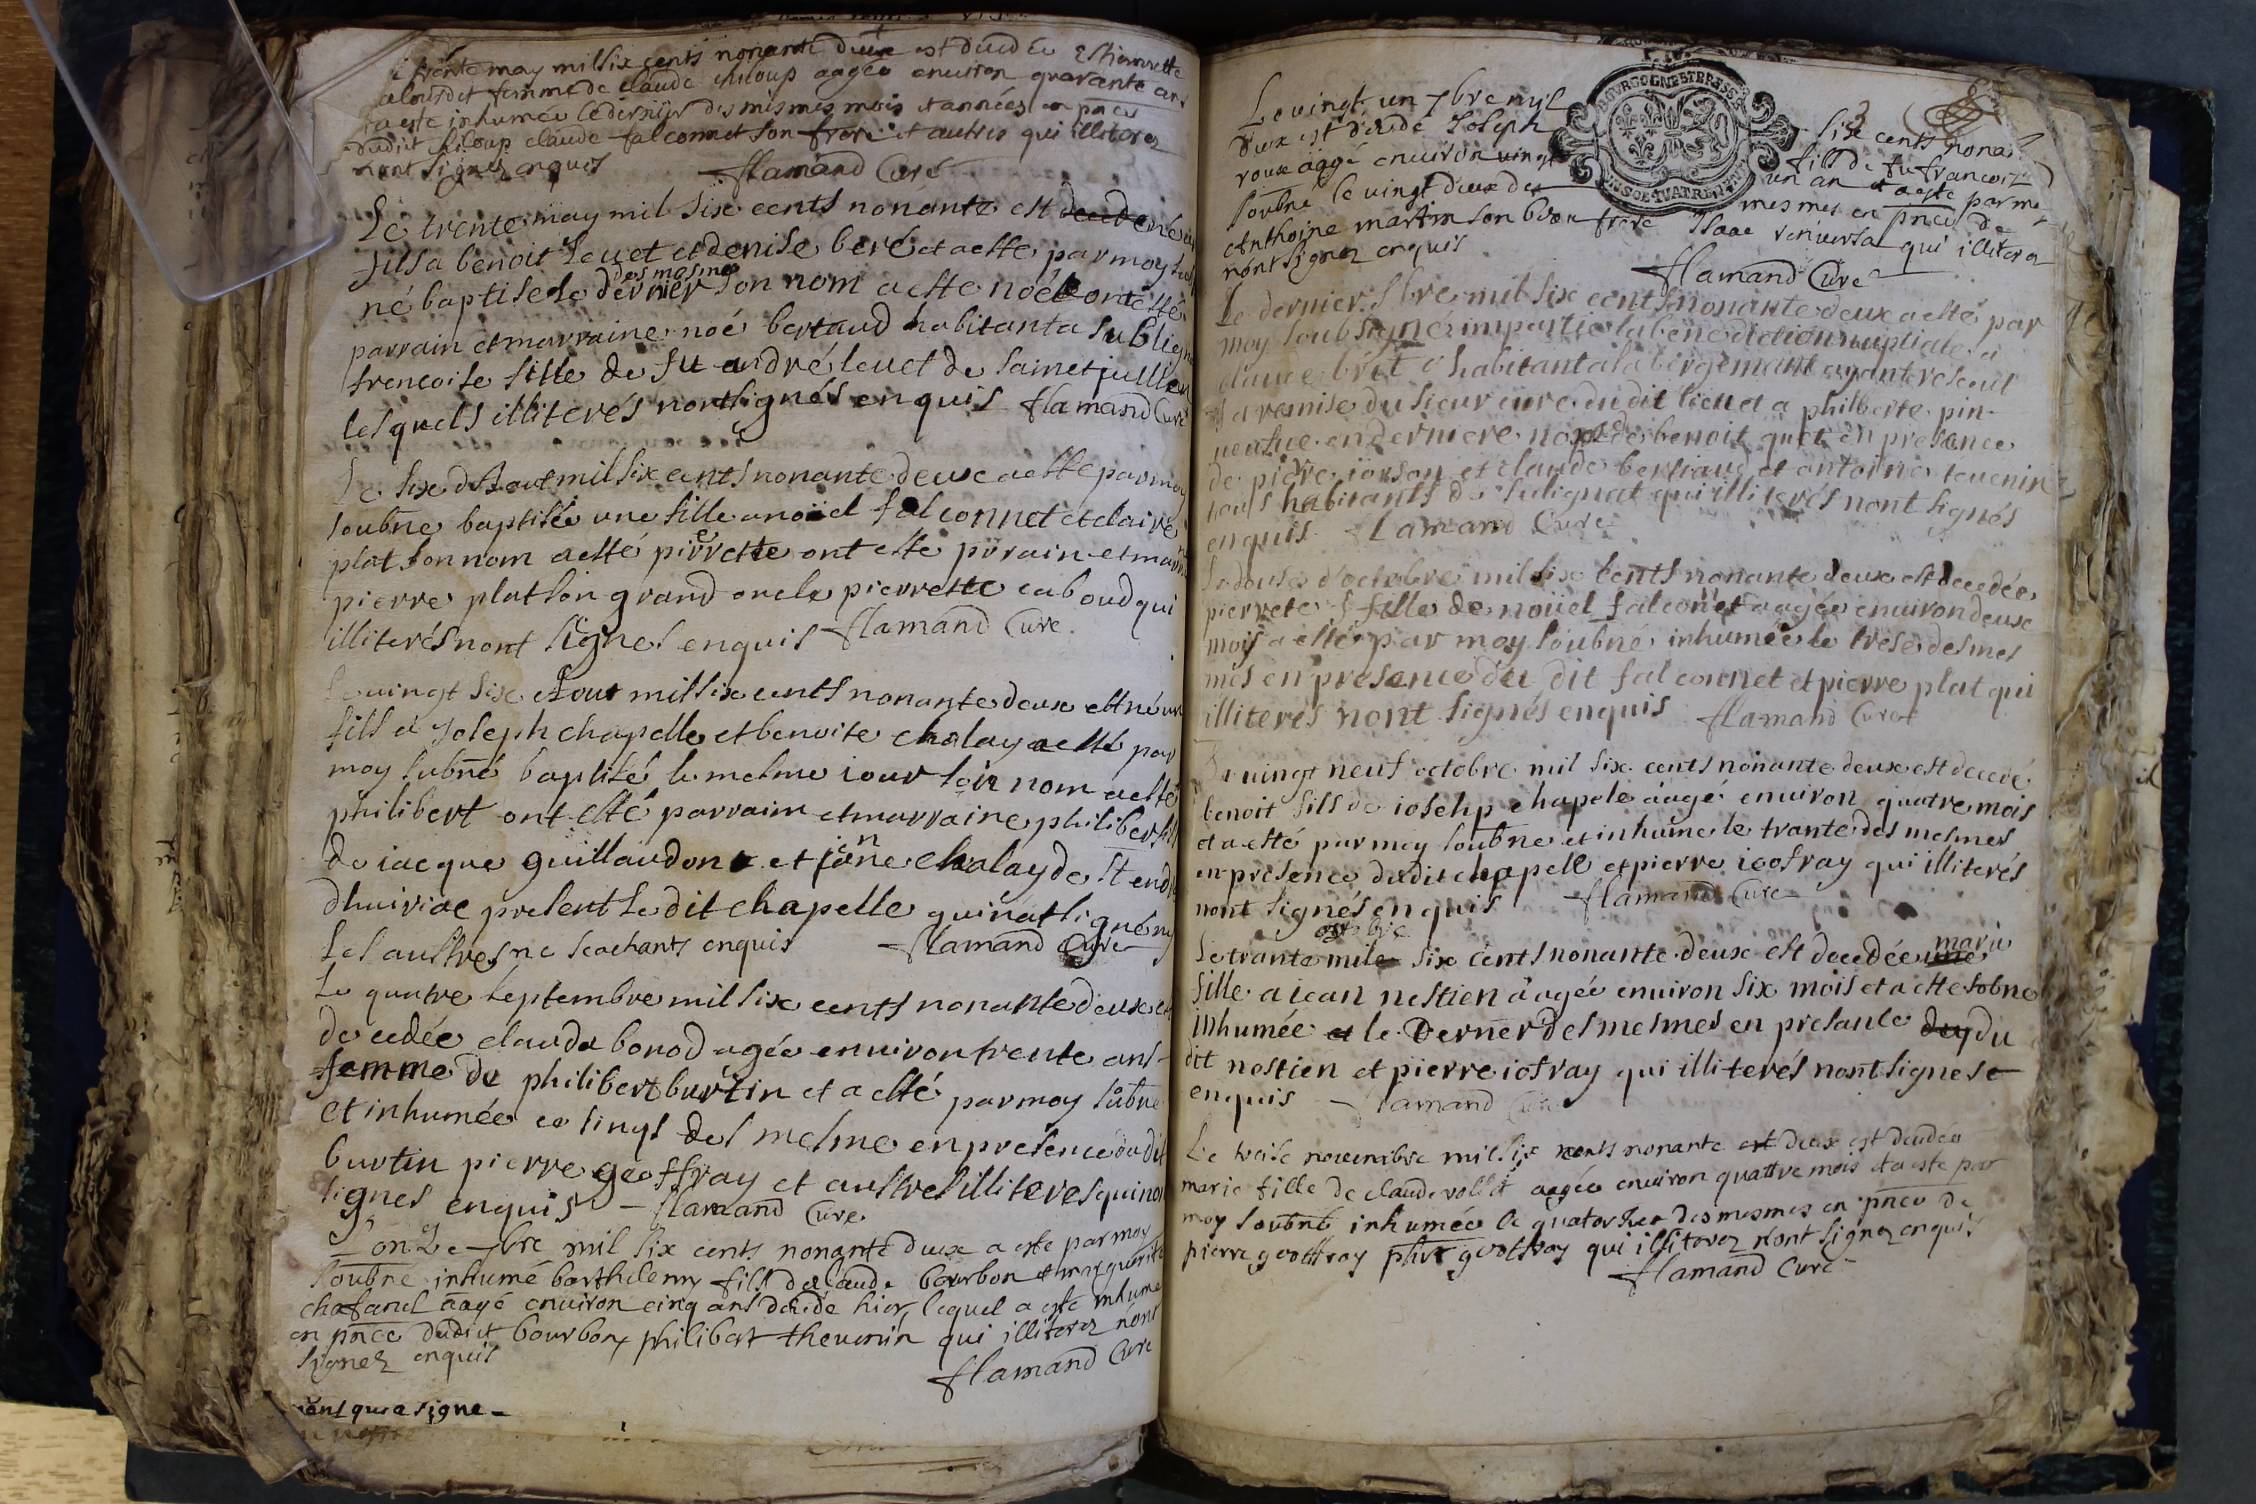 trente may mil six cents nonante deux est decedée Estiennette
femme de claude chiloup aagée environ quarante ans
a esté inhumée le dernier des mismes mois et années en pnce
dudit chiloup claude falconnet son frere et autres qui illiterez
nont signez enquis flamand Curé
Le trente may mil six cents nonante est decede né un
fils a benoit Levet et denise beré et a esté par moy
né baptisé le dernier des mesmes son nom a esté noél ont esté
parrain et marraine noé bertaud habitant a Sublign
francoise fille de fu andré levet de sainct jullien
lesquels illiterés nont signés enquis flamand Curé
Le six dAout mil six cents nonante deux a esté par moy
soubne baptisée une fille a noiel falconnet et claire
plat son nom a esté pierrette ont esté parain et mar
pierre plat son grand oncle pierrette caboud qui
illiterés nont signes enquis flamand Cure
Le vingt six Aout mil six cents nonante deux est né un
fils a Joseph chapelle et benoite chalay a esté par
moy subné baptisé le mesme iour son nom a esté
philibert ont esté parrain et marraine philibert fils
de iacque guillaudon et janne chalay de St andr
dhuiriac present le dit chapelle qui nat signé ny
les aultres ne scachants enquis flamand Cure
Le quatre septembre mil six cents nonante deux est
decedée clauda bonod agée environ trente ans
femme de philibert burtin et a esté par moy subne
et inhumée ce sinqt des mesme en presence du dit
burtin pierre geoffray et aultres illiteres qui non
signes enquis flamand Cure
L'onze 7bre mil six cents nonante deux a este par moy
soubné inhumé barthelemy fils de claude bourbon et marguerite
chafanel aagé environ cinq ans decede hier, lequel a este inhume
en pnce dudict bourbon, philibert thevenin qui illiterez nont
signez enquis
flamand Cure
qui a signe
Le vingt un 7bre mil six cents nonan
deux est decedé Joseph fils de fu francois
roux aagé environ vingt un an et a este par moy
soubné le vingt deux des mesmes en pnce de
Anthoine martin son beau frere Isaac qui illiterez
nont signez enquis
flamand Cure
Le dernier 8bre mil six cents nonante deux a esté par
moy soubsigné impartie la benediction nuptiale a
claude brét habitant a labergement ayant receu
la remise du sieur cure du dit lieu et a philberte pin
veufue en derniere nopce de benoit quet en presence
de piere iorson et claude bertiaud et antoine tevenin
tous habitants de sulignat qui illiterés nont signés
enquis flamand Cure
Le douse d'octobre mil six cents nonante deux est decedée
pierrete fille de noüel falconet aagée environ deux
mois a esté par moy soubné inhumée le trese des mes
mes en presence du dit falconnet et pierre plat qui
illiterés nont signés enquis flamand Cure
Le vingt neuf octobre mil six cents nonante deux est decedé
benoit fils de iosehp chapele aagé environ quatre mois
et a esté par moy soubne et inhume le trante des mesmes
en presence dudit chapelle et pierre ieofray qui illiterés
nont signés enquis flamand Cure
octobre
Le trante mile six cents nonante deux est decedée une marie
fille a iean nestien aagée environ six mois et a este sobne
inhumée et le Dernier des mesmes en presante dey du
dit nestien et pierre iofray qui illiterés nont signes
enquis flamand Cure
Le treise novembre mil six cents nonante et deux est decedée
marie fille de claude vollet aagée environ quattre mois et a este par
moy soubné inhumée le quatorzieme des mesmes en pnce de
pierre geoffray phirt geoffray qui illiterez n'ont signez enquis
flamand Cure